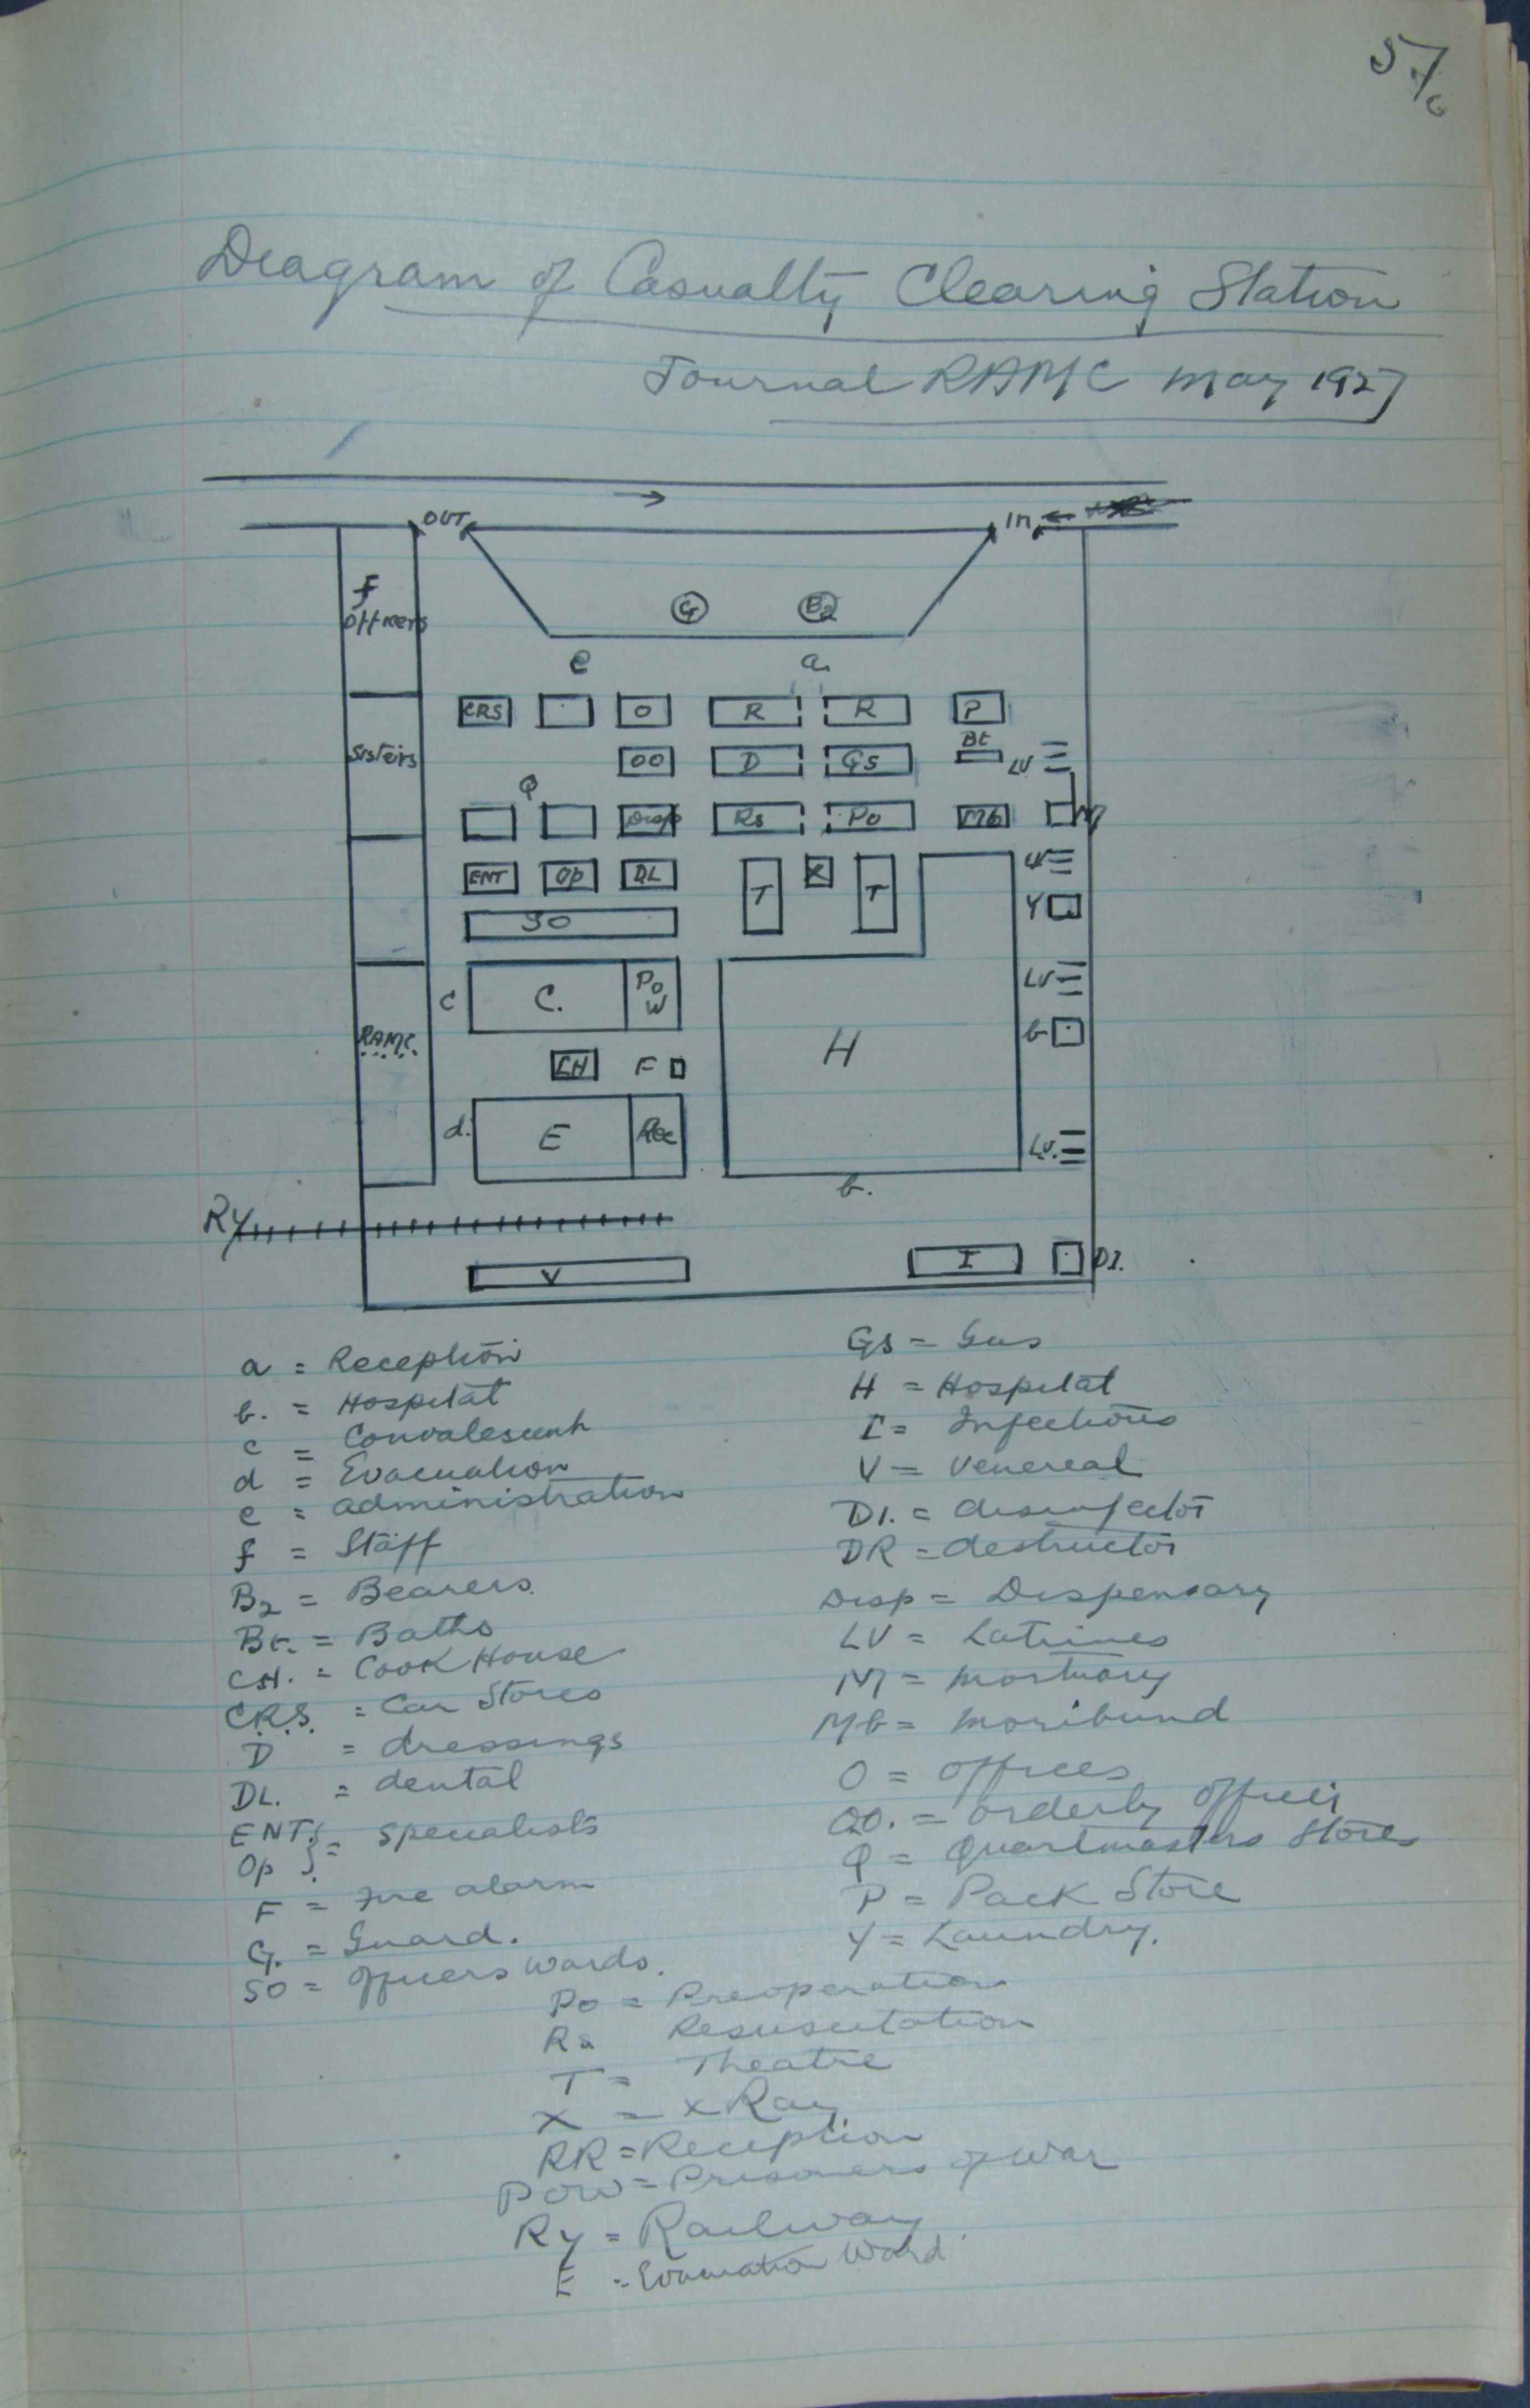 57
Diagram of Casualty Clearing Station
Journal RAMC May 1927
OUT
In
f
officers
G
B2
e
a
CRS
O
R
R
P
Sisters
OO
D
Gs
Bt
LV
Q
Disp
Rs
Po
Mb
M
ENT
Op
DL
T
X
T
LV
Y
SO
c
C.
Po
W
LV
H
b
RAMC.
CH
F
d.
E
Rec
LV.
b.
Ry
V
I
DI.
a = Reception
b. = Hospital
c = Convalescent
d = Evacuation
e = administration
f = Staff
B2 = Bearers.
Bt. = Baths
CH. = Cook House
C.R.S. = Car Stores
D = dressings
DL. = dental
ENT } = Specialists
Op }
F = Fire alarm
G. = Guard.
SO = Officers wards.
Gs = Gas
H = Hospital
I = Infectious
V = Venereal
DI. = disinfector
DR = destructor
Disp = Dispensary
LV = Latrines
M = mortuary
Mb = moribund
O = offices
OO. = orderly officer
Q = Quartmasters Stores
P = Pack Store
Y = Laundry.
Po = Preoperation
Rs Resuscitation
T = Theatre
X = x Ray
RR = Reception
POW = Prisoners of War
Ry = Railway
E = Evacuation Ward